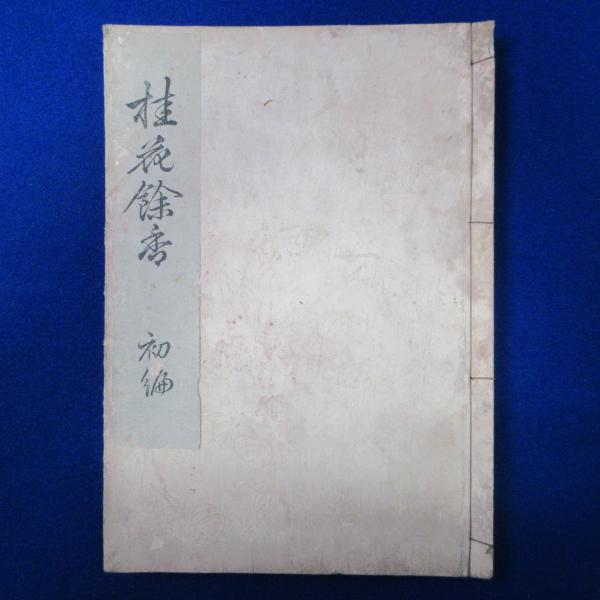 桂花餘香
初編